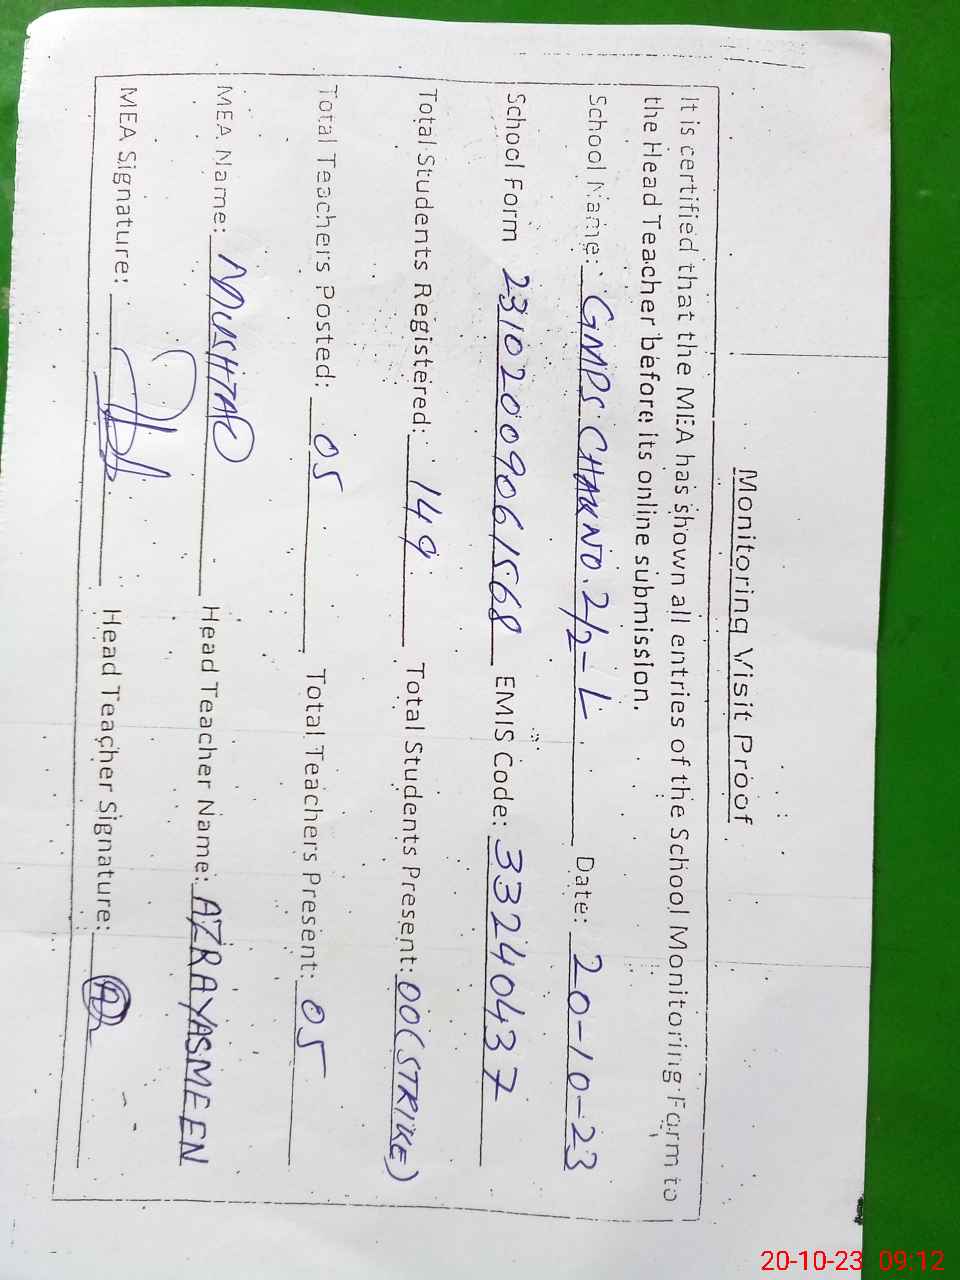 Monitoring Visit Proof
It is certified that the MEA has shown all entries of the School Monitoring Form to
the Head Teacher before its online submission.
School Name: GMPS CHAK NO. 2/2-L Date: 20-10-23
School Form 23102009061568 EMIS Code: 33240437
Total Students Registered: 149 Total Students Present: 00 (STRIKE)
Total Teachers Posted: 05 Total Teachers Present: 05
MEA Name: MUSHTAQ Head Teacher Name: AZRA YASMEEN
MEA Signature: Head Teacher Signature:
20-10-23 09:12